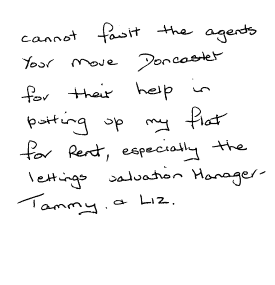 cannot fault the agents
Your Move Doncaster
for their help in
putting up my flat
for Rent, especially the
lettings valuation Manager-
Tammy. & Liz.